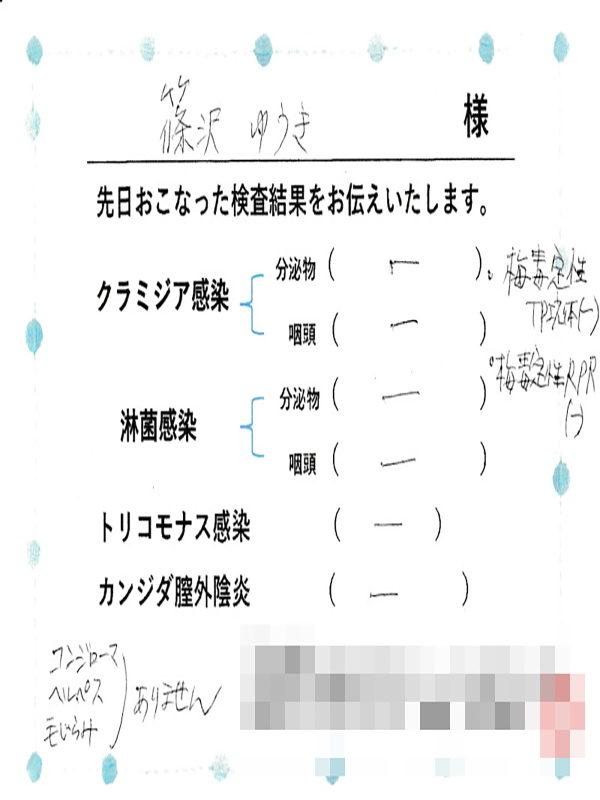 篠沢 ゆうき 様
先日おこなった検査結果をお伝えいたします。
クラミジア感染
分泌物 ( ー )
咽頭 ( ー )
淋菌感染
分泌物 ( ー )
咽頭 ( ー )
トリコモナス感染 ( ー )
カンジダ膣外陰炎 ( ー )
・梅毒定性
TP抗体(-)
・梅毒定性RPR
(-)
コンジローマ
ヘルペス
毛じらみ
ありません